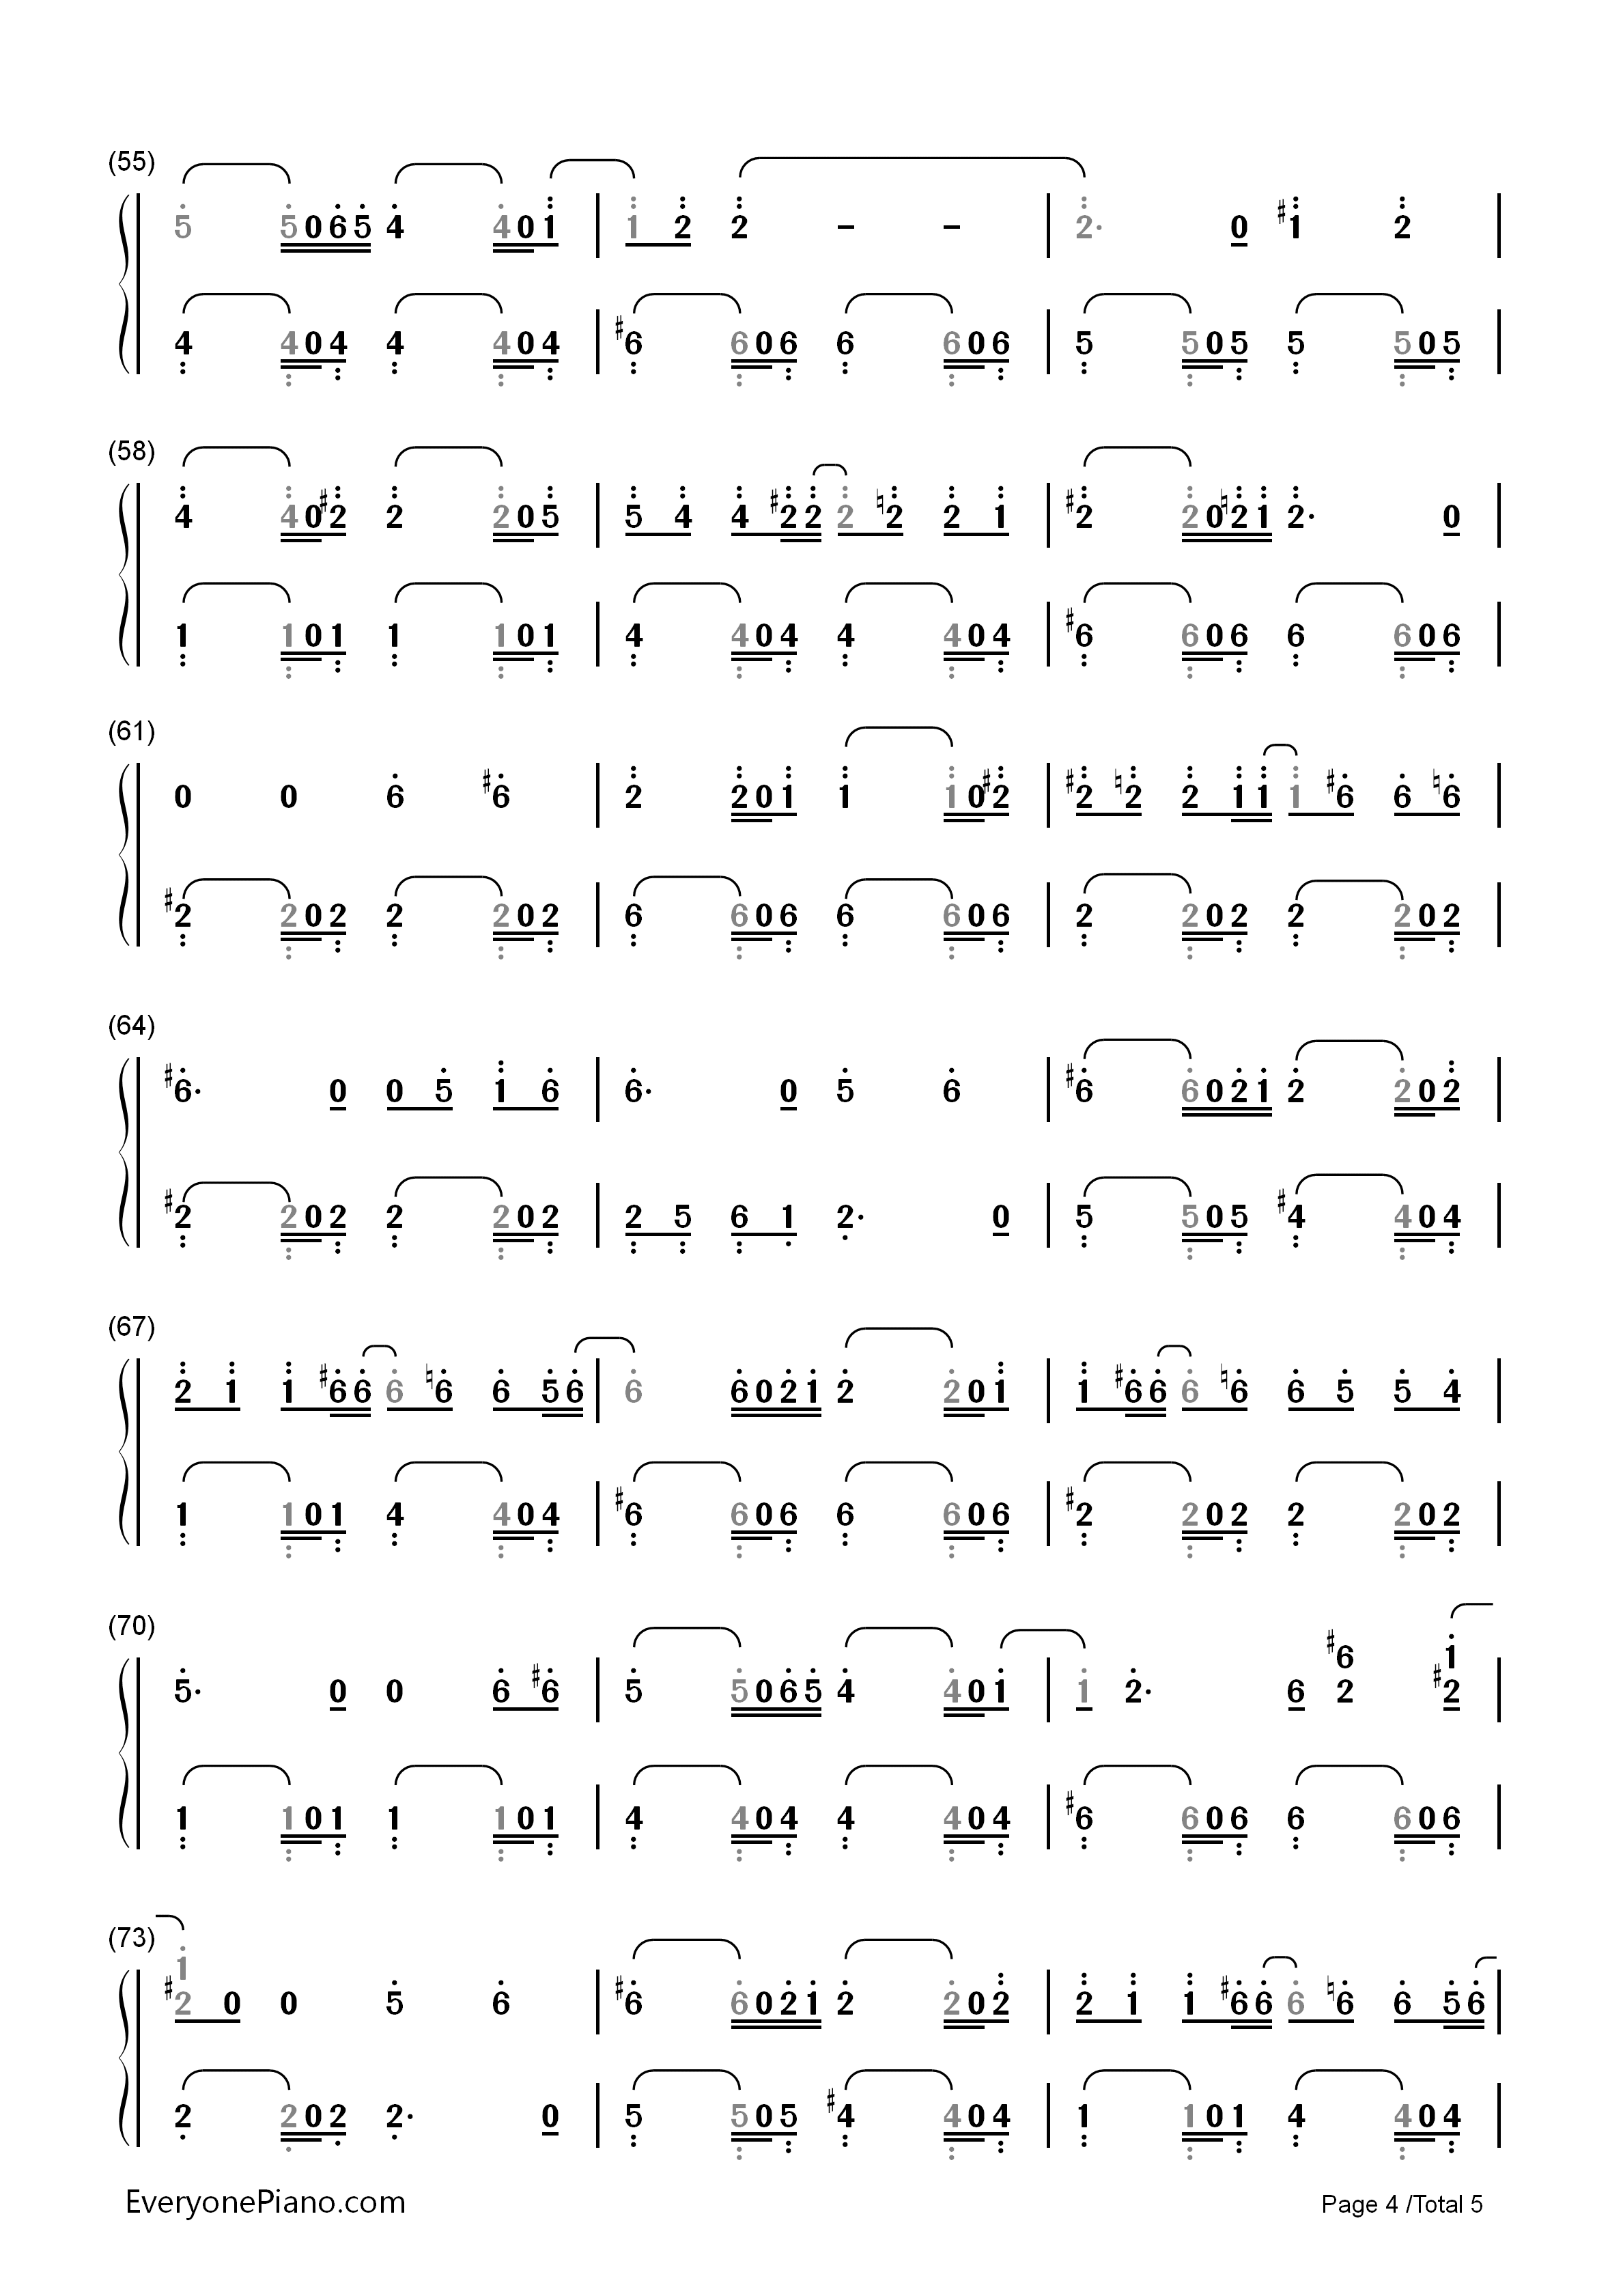 (55)
5 5 0 6 5 4 4 0 1 | 1 2 2 – – | 2· 0 #1 2 |
4 4 0 4 4 4 0 4 | #6 6 0 6 6 6 0 6 | 5 5 0 5 5 5 0 5 |
(58)
4 4 0 #2 2 2 0 5 | 5 4 4 #2 2 2 ♮2 2 1 | #2 2 0 ♮2 1 2· 0 |
1 1 0 1 1 1 0 1 | 4 4 0 4 4 4 0 4 | #6 6 0 6 6 6 0 6 |
(61)
0 0 6 #6 | 2 2 0 1 1 1 0 #2 | #2 ♮2 2 1 1 1 #6 6 ♮6 |
#2 2 0 2 2 2 0 2 | 6 6 0 6 6 6 0 6 | 2 2 0 2 2 2 0 2 |
(64)
#6· 0 0 5 1 6 | 6· 0 5 6 | #6 6 0 2 1 2 2 0 2 |
#2 2 0 2 2 2 0 2 | 2 5 6 1 2· 0 | 5 5 0 5 #4 4 0 4 |
(67)
2 1 1 #6 6 6 ♮6 6 5 6 | 6 6 0 2 1 2 2 0 1 | 1 #6 6 6 ♮6 6 5 5 4 |
1 1 0 1 4 4 0 4 | #6 6 0 6 6 6 0 6 | #2 2 0 2 2 2 0 2 |
(70)
#6 1
5· 0 0 6 #6 | 5 5 0 6 5 4 4 0 1 | 1 2· 6 2 #2 |
1 1 0 1 1 1 0 1 | 4 4 0 4 4 4 0 4 | #6 6 0 6 6 6 0 6 |
(73)
1
#2 0 0 5 6 | #6 6 0 2 1 2 2 0 2 | 2 1 1 #6 6 6 ♮6 6 5 6 |
2 2 0 2 2· 0 | 5 5 0 5 #4 4 0 4 | 1 1 0 1 4 4 0 4 |
EveryonePiano.com
Page 4 /Total 5